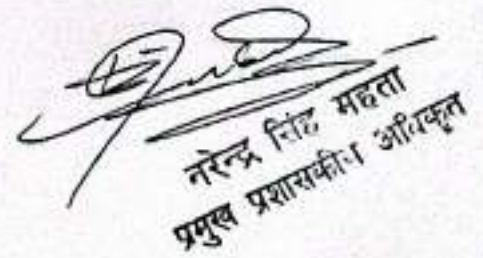 नरेन्द्र सिंह महता
प्रमुख प्रशासकीय अधिकृत